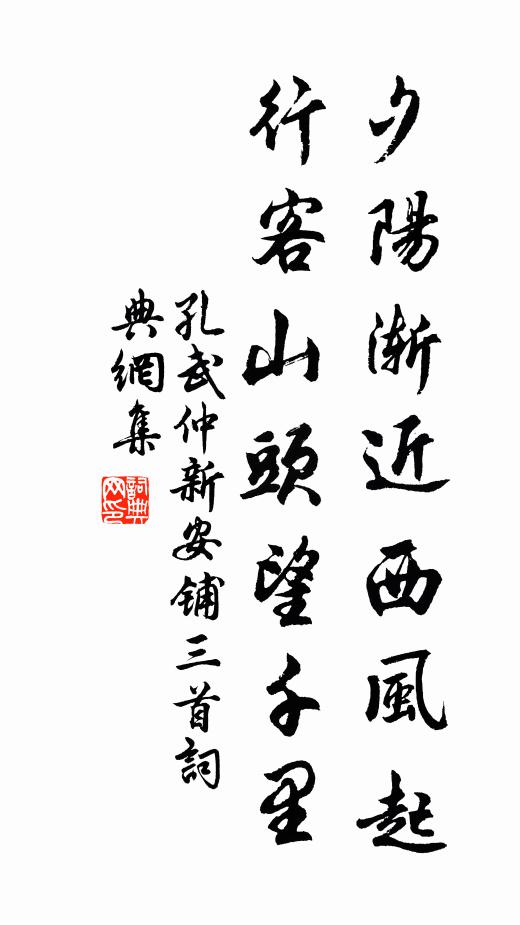 夕陽漸近西風起
行客山頭望千里
孔武仲新安鋪三首詞
典網集
詞典
网印